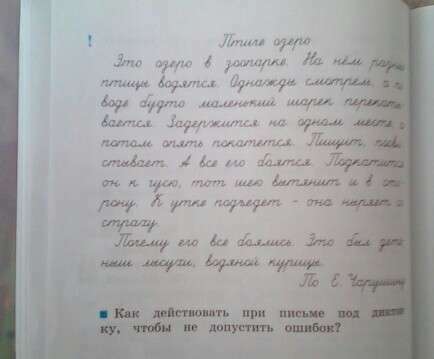 ! Птиче озеро
Это озеро в зоопарке. На нём разные
птицы водятся. Однажды смотрем, а по
воде будто маленький шарек перекаты-
вается. Задержится на одном месте, а
потом опять покатется. Пищит, посви-
стывает. А все его боятся. Подкатится
он к гусю, тот шею вытянит и в сто-
рону. К утке подъедет - она ныряет от
страху.
Почему его все боялись. Это был дете-
ныш лысухи, водяной курицы.
По Е. Чарушину
Как действовать при письме под диктов-
ку, чтобы не допустить ошибок?